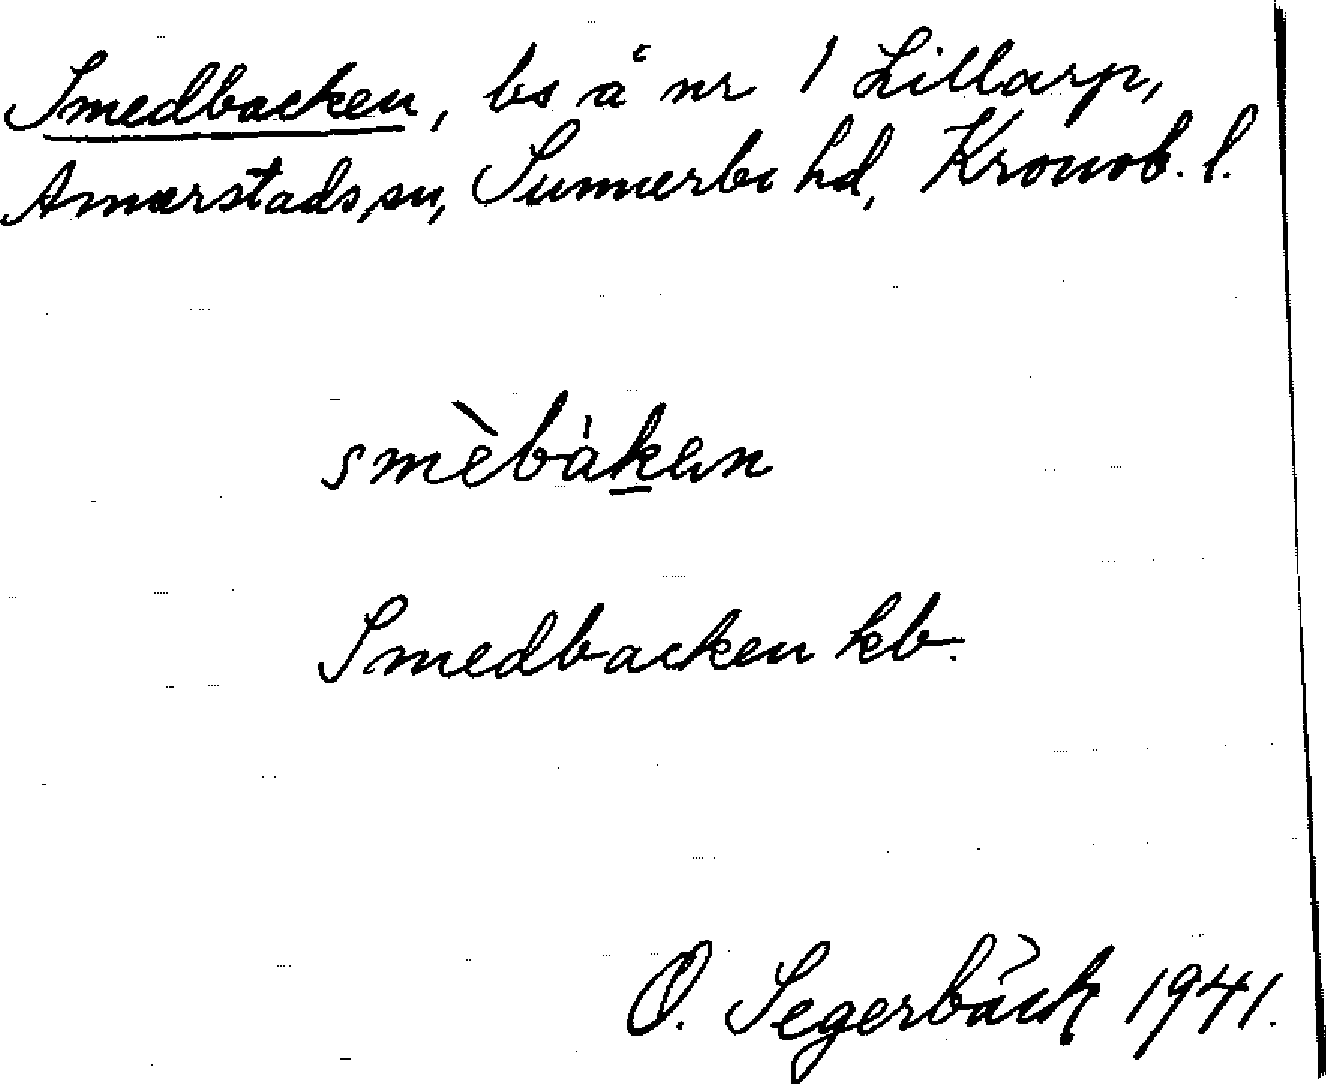 Smedbacken, bs å nr 1 Lillarp,
Annerstads sn, Sunnerbo hd, Kronob. l.
smèbàken
Smedbacken kb.
O. Segerbäck 1941.